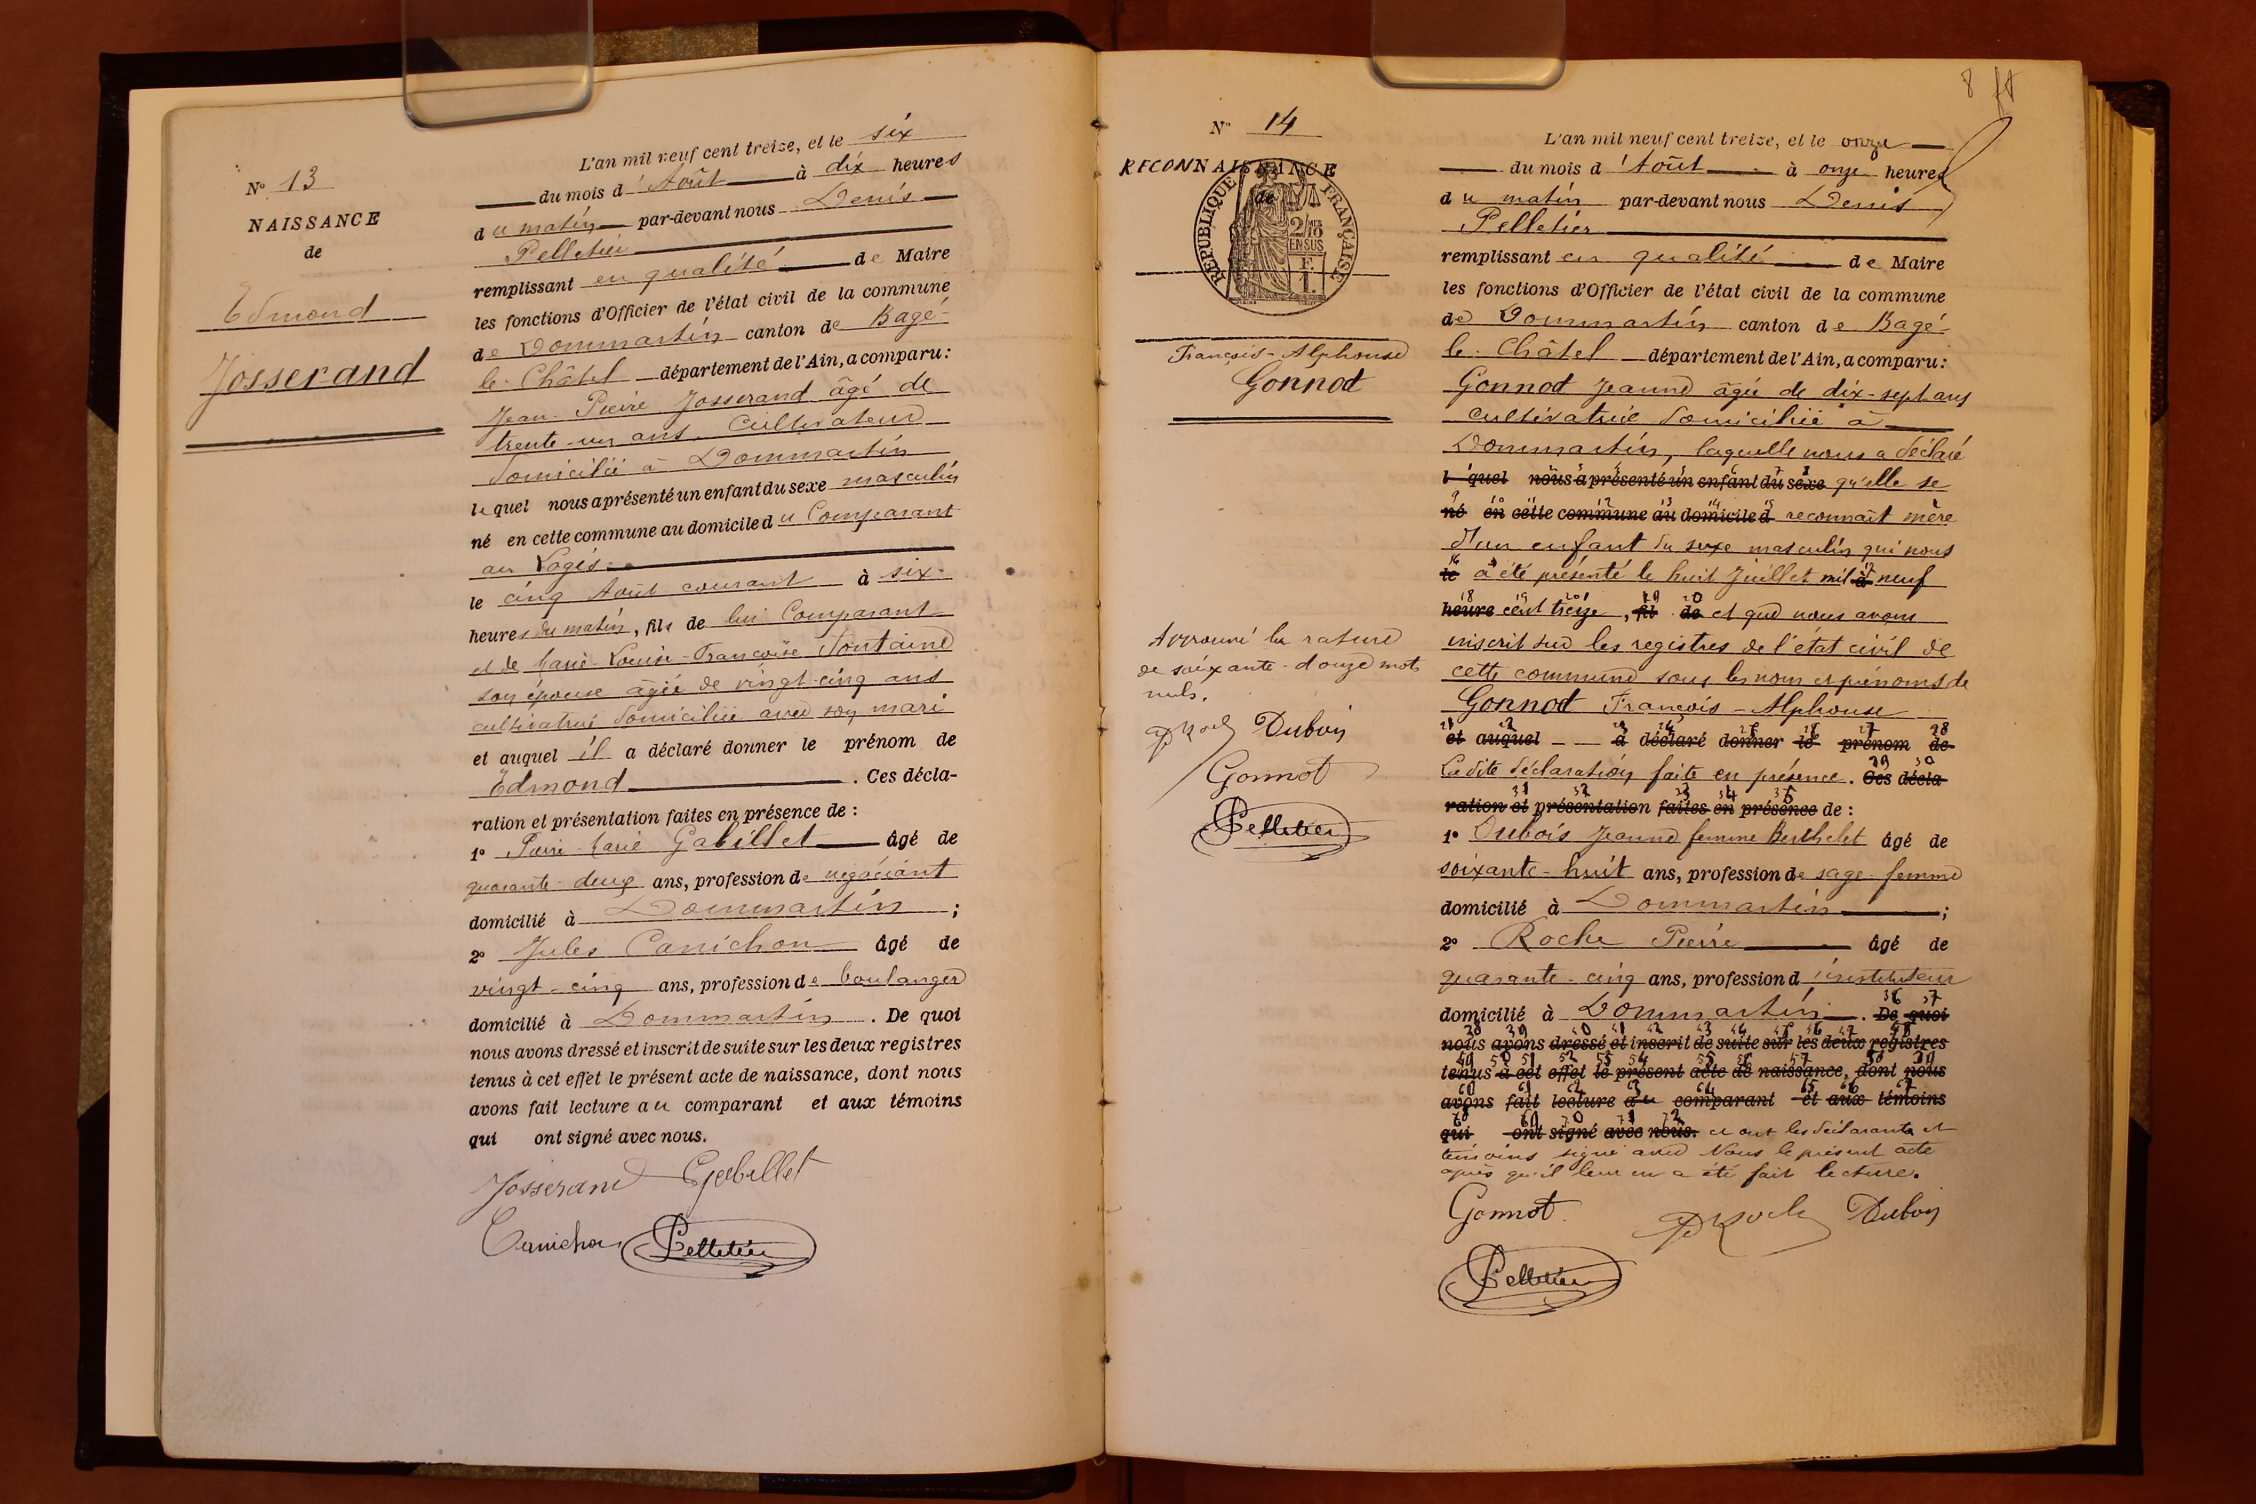 N° 13
NAISSANCE
de
Edmond
Josserand
L'an mil neuf cent treize, et le six
du mois d'Août à dix heures
du matin par-devant nous Denis
Pelletier
remplissant en qualité de Maire
les fonctions d'Officier de l'état civil de la commune
de Dommartin canton de Bagé-
le-Châtel département de l'Ain, a comparu:
Jean-Pierre Josserand âgé de
trente-un ans Cultivateur
domicilié à Dommartin
lequel nous a présenté un enfant du sexe masculin
né en cette commune au domicile du Comparant
au Logis
le cinq Août courant à six
heures du matin, fils de lui Comparant
et de Marie-Louise-Françoise Fontaine
son épouse âgée de vingt-cinq ans
cultivatrice domiciliée avec son mari
et auquel il a déclaré donner le prénom de
Edmond. Ces décla-
ration et présentation faites en présence de :
1° Pierre-Marie Gabillet âgé de
quarante-deux ans, profession de négociant
domicilié à Dommartin ;
2° Jules Canichon âgé de
vingt-cinq ans, profession de boulanger
domicilié à Dommartin. De quoi
nous avons dressé et inscrit de suite sur les deux registres
tenus à cet effet le présent acte de naissance, dont nous
avons fait lecture au comparant et aux témoins
qui ont signé avec nous.
Josserand Gabillet
Canichon Pelletier
8
N° 14
RECONNAISSANCE
de
RÉPUBLIQUE FRANÇAISE
2/10 EN SUS
F.
1.
François-Alphonse
Gonnot
Approuvé la rature
de soixante-douze mots
nuls.
P Roche Dubois
Gonnot
Pelletier
L'an mil neuf cent treize, et le onze
du mois d'Août à onze heures
du matin par-devant nous Denis
Pelletier
remplissant en qualité de Maire
les fonctions d'Officier de l'état civil de la commune
de Dommartin canton de Bagé-
le-Châtel département de l'Ain, a comparu:
Gonnot Jeanne âgée de dix-sept ans
cultivatrice domiciliée à
Dommartin, laquelle nous a déclaré
lequel nous a présenté un enfant du sexe qu'elle se
né en cette commune au domicile d reconnaît mère
d'un enfant du sexe masculin qui nous
le a été présenté le huit Juillet mil à neuf
heure cent treize, fil de et que nous avons
inscrit sur les registres de l'état civil de
cette commune sous les nom et prénoms de
Gonnot François-Alphonse
et auquel a déclaré donner le prénom de
La dite déclaration faite en présence. Ces décla-
ration et présentation faites en présence de :
1° Dubois Jeanne femme Berthelet âgé de
soixante-huit ans, profession de sage-femme
domicilié à Dommartin ;
2° Roche Pierre âgé de
quarante-cinq ans, profession d'instituteur
domicilié à Dommartin. De quoi
nous avons dressé et inscrit de suite sur les deux registres
tenus à cet effet le présent acte de naissance, dont nous
avons fait lecture au comparant et aux témoins
qui ont signé avec nous. et ont les déclarante et
témoins signé avec Nous le présent acte
après qu'il leur en a été fait lecture.
Gonnot P Roche Dubois
Pelletier